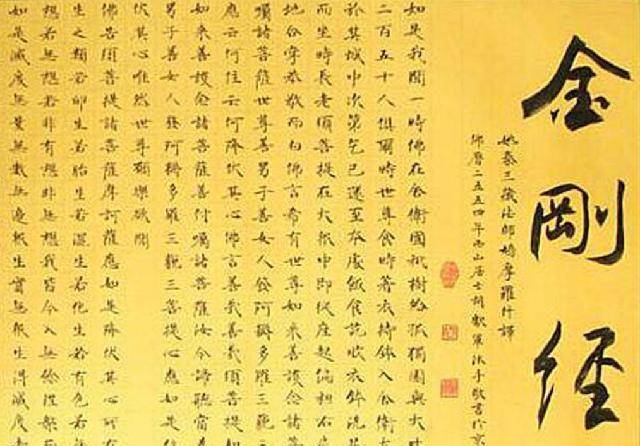 金剛經
姚秦三藏法師鳩摩羅什譯
佛曆二五五四年西山居士胡獻軍沐手敬書於京
如是我聞一時佛在舍衛國祇樹給孤獨園與大
二百五十人俱爾時世尊食時著衣持鉢入舍衛
於其城中次第乞已還至本處飯食訖收衣鉢洗
而坐時長老須菩提在大眾中即從座起偏袒右
地合掌恭敬而白佛言希有世尊如來善護念諸
囑諸菩薩世尊善男子善女人發阿耨多羅三藐三
應云何住云何降伏其心佛言善哉善哉須菩提如
如來善護念諸菩薩善付囑諸菩薩汝今諦聽當
善男子善女人發阿耨多羅三藐三菩提心應如是
伏其心唯然世尊願樂欲聞
佛告須菩提諸菩薩摩訶薩應如是降伏其心所有
生之類若卵生若胎生若濕生若化生若有色若
想若無想若非有想非無想我皆令入無餘涅槃
如是滅度無量無數無邊眾生實無眾生得滅度